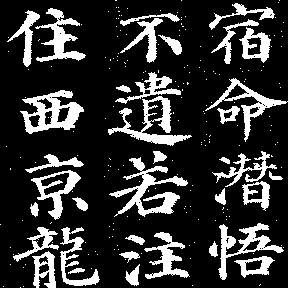 宿命潛悟
不遺若注
住西亰龍